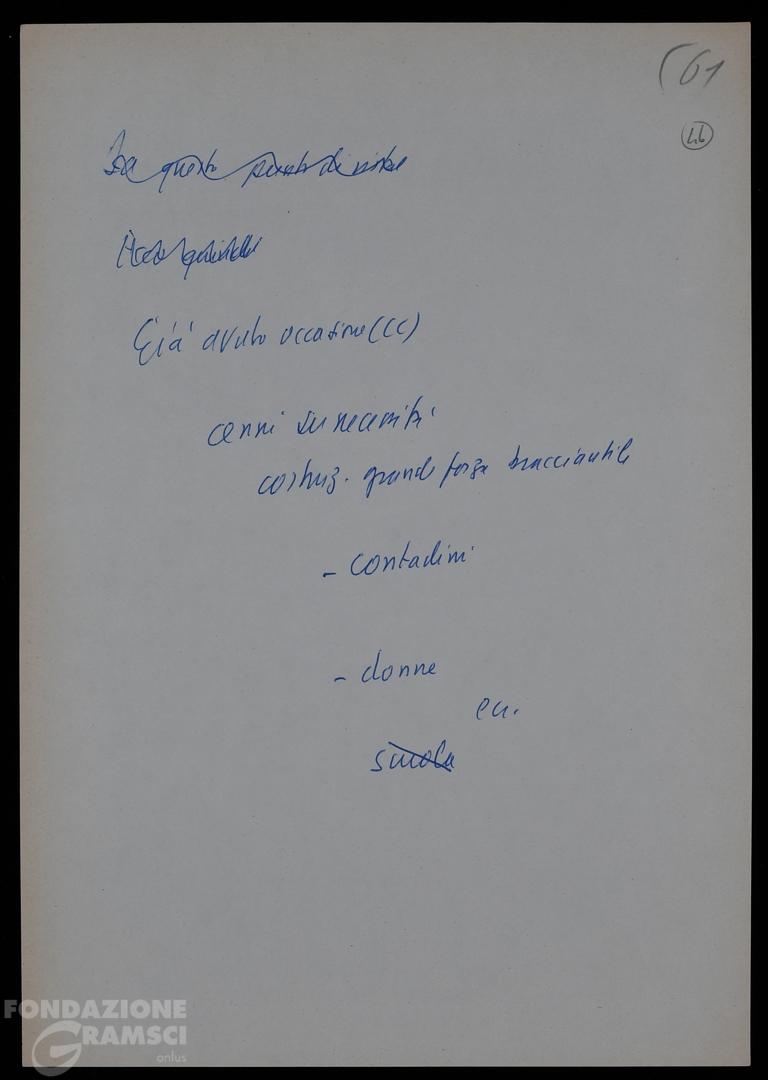 (61
46
Da questo punto di vista
Già avuto occasione (CC)
cenni su necessità
costruz. grande forza bracciantile
- contadini
- donne
ecc.
scuola
FONDAZIONE
GRAMSCI
onlus